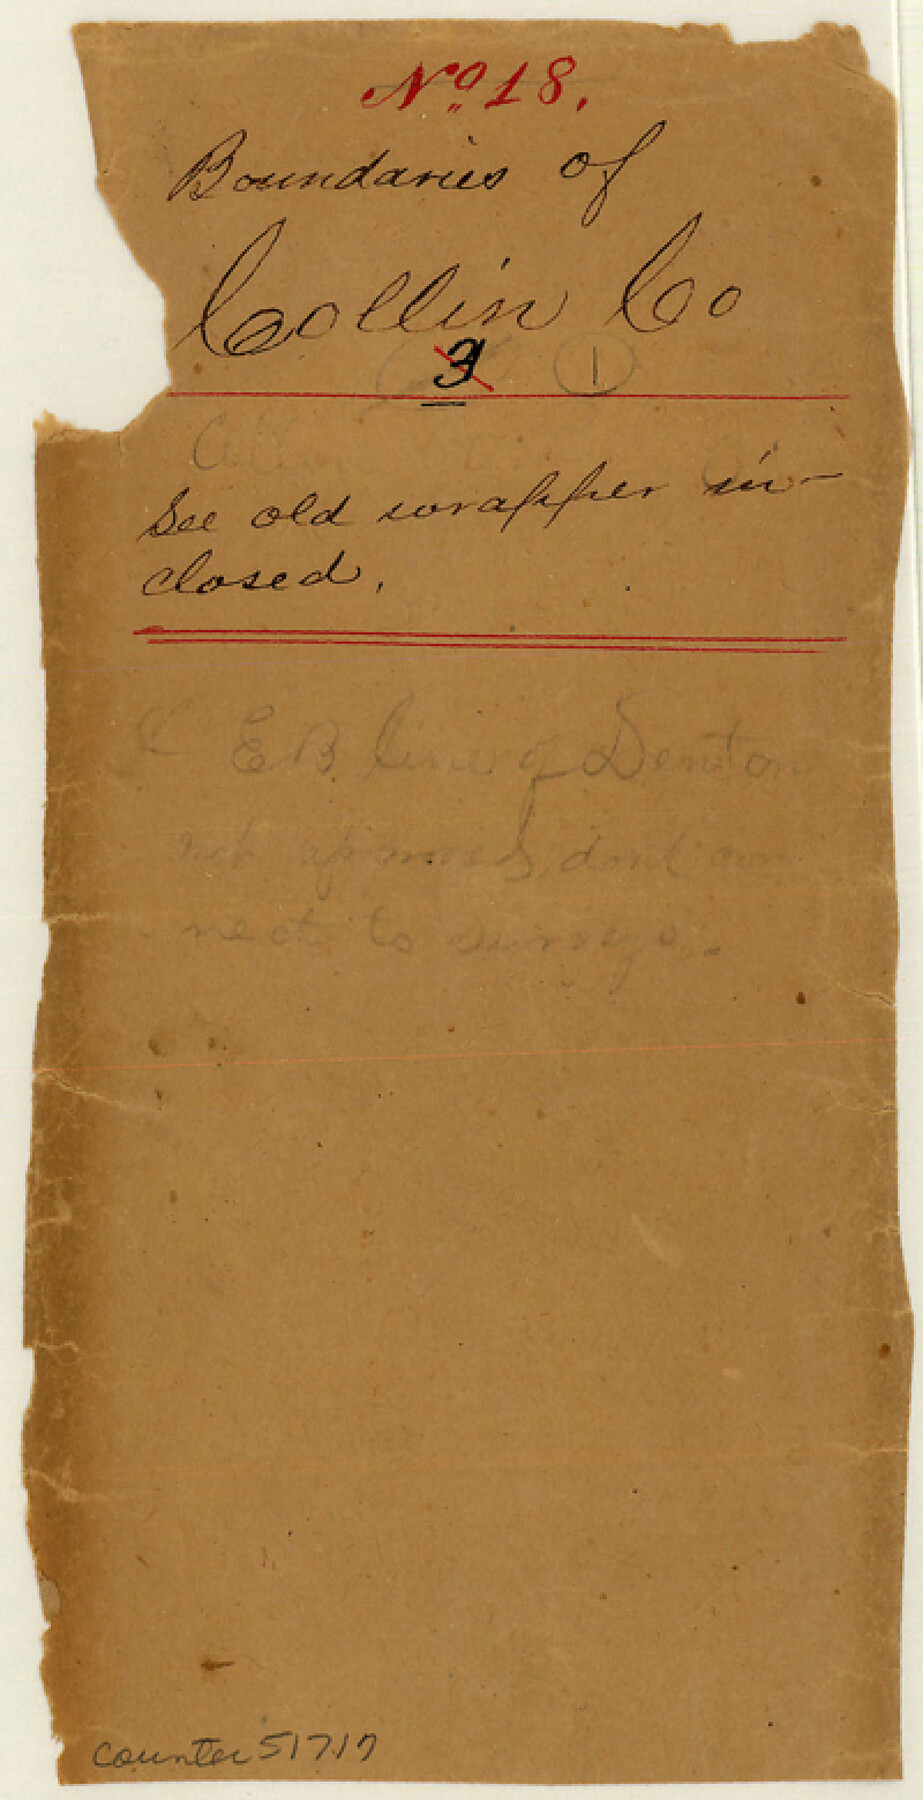 No. 18.
Boundaries of
Collin Co
3 1
See old wrapper in-
closed.
E B line of Denton
not approved, dont con
nect to surveys.
counter 51717